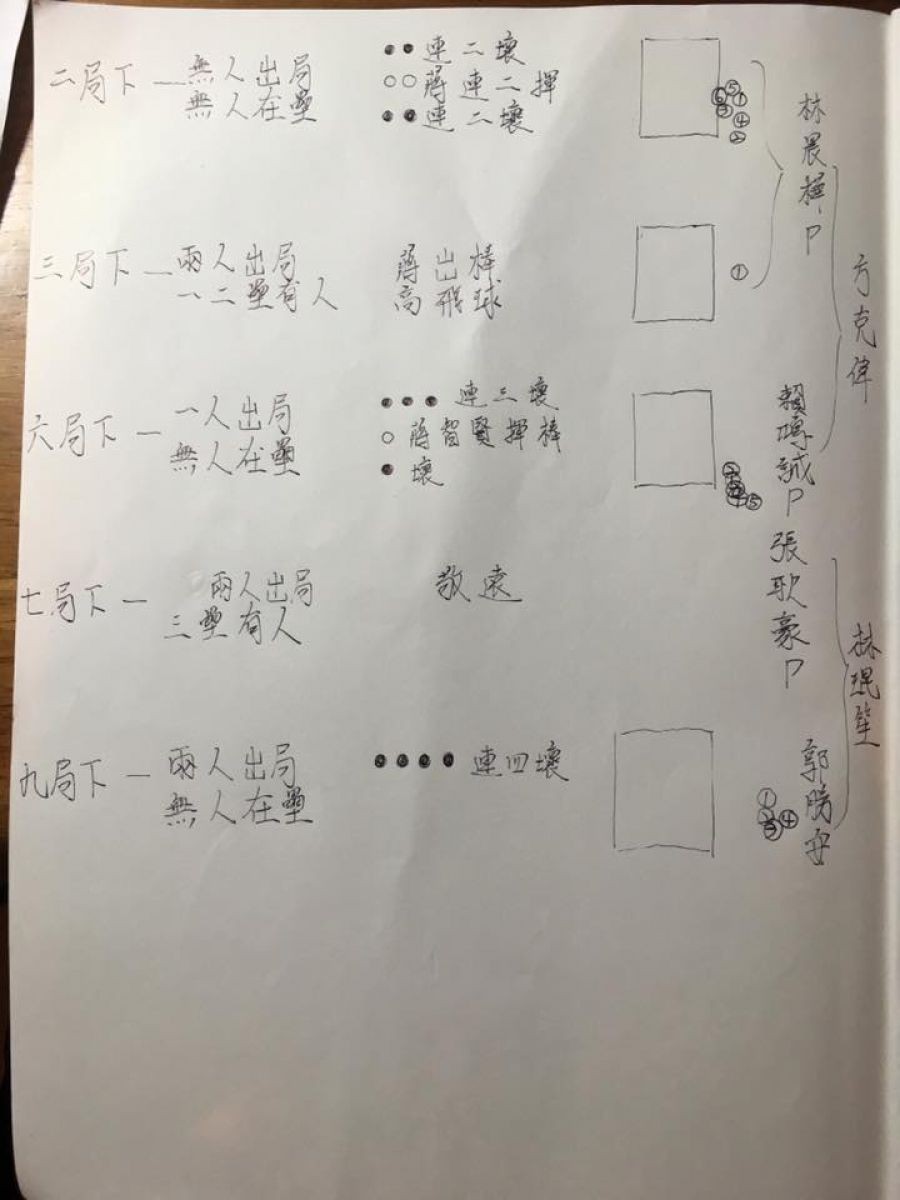 二局下 — 無人出局
無人在壘
●●連二壞
○○蔣連二揮
●●連二壞
⑥⑤①
③④
②
林晨樺P
三局下 — 兩人出局
一二壘有人
蔣出棒
高飛球
①
方克偉
六局下 — 一人出局
無人在壘
●●● 連三壞
○ 蔣智賢揮棒
● 壞
⑤
賴鴻誠P
七局下 — 兩人出局
三壘有人
敬遠
張耿豪P
林琨笙
九局下 — 兩人出局
無人在壘
●●●● 連四壞
①
②
③④
郭勝安